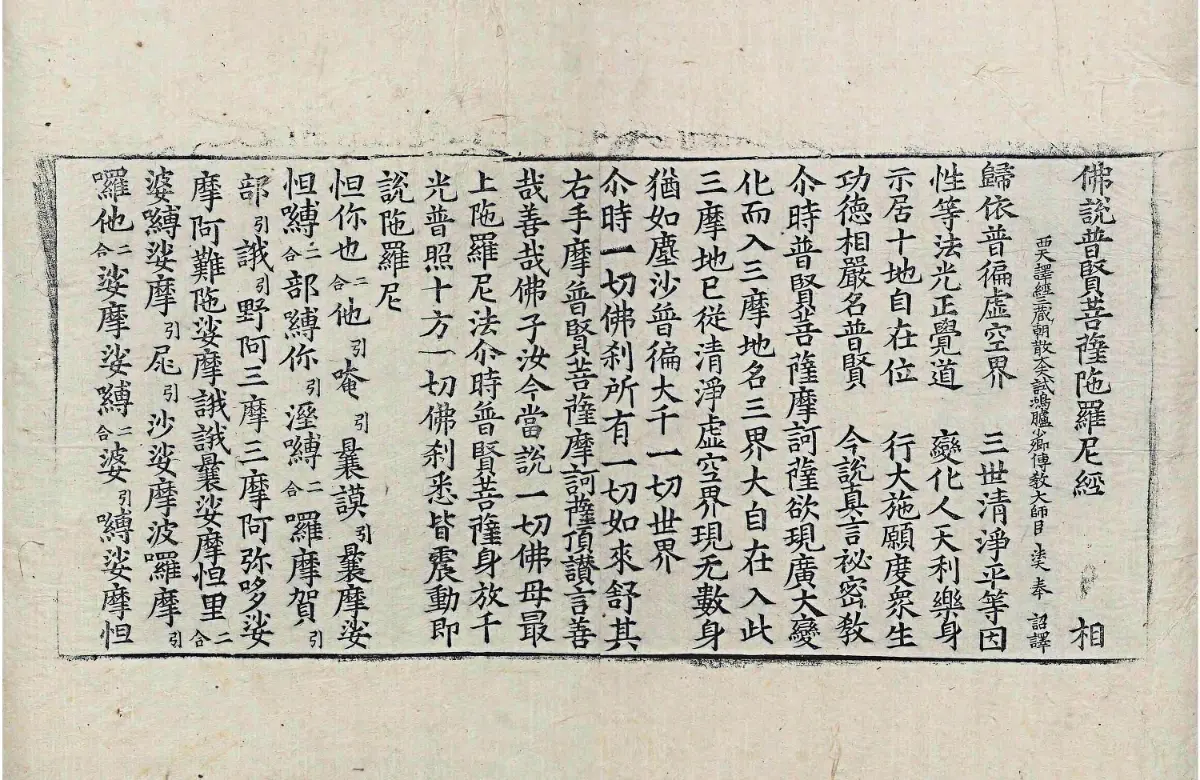 佛說普賢菩薩陁羅尼經 相
西天譯經三藏朝散大夫試鴻臚少卿傳教大師臣 奉 詔譯
歸依普徧虛空界 三世清淨平等因
性等法光正覺道 變化人天利樂身
示居十地自在位 行大施願度衆生
功德相嚴名普賢 今說真言祕密教
尒時普賢菩薩摩訶薩欲現廣大變
化而入三摩地名三界大自在入此
三摩地已從清淨虛空界現无數身
猶如塵沙普徧大千一切世界
尒時一切佛刹所有一切如來舒其
右手摩普賢菩薩摩訶薩頂讃言善
哉善哉佛子汝今當說一切佛母最
上陁羅尼法尒時普賢菩薩身放千
光普照十方一切佛刹悉皆震動即
說陁羅尼
怛你也二合他引唵引曩謨引曩摩娑
怛嚩二合部嚩你引溼嚩二合羅摩賀引
部引誐引野阿三摩三摩阿弥哆娑
摩阿難陁娑摩誐誐曩娑摩怛里二合
婆嚩娑摩引尾引沙娑摩波囉摩引
囉他二合娑摩娑嚩二合婆引嚩娑摩怛